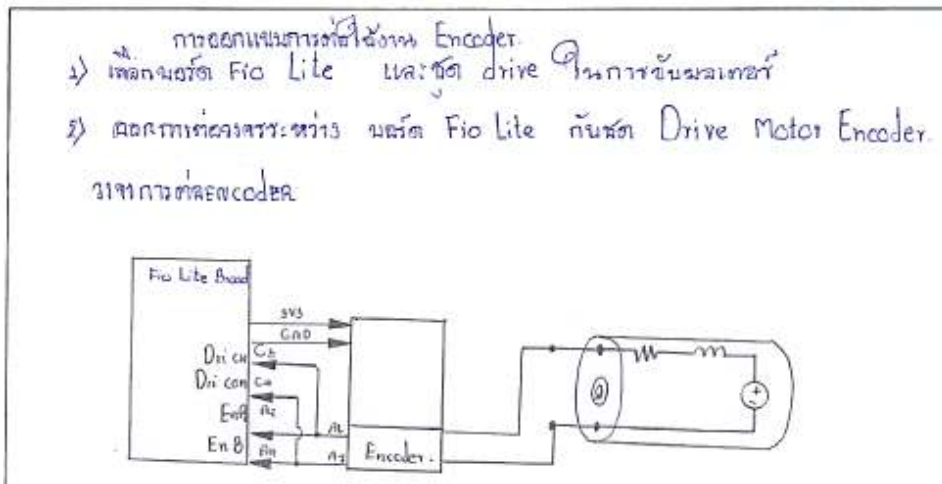 การออกแบบการต่อใช้งาน Encoder.
1) เลือกบอร์ด Fio Lite และชุด drive ในการขับมอเตอร์
2) ออกการต่อวงจรระหว่าง บอร์ด Fio Lite กับชุด Drive Motor Encoder.
วงจรการต่อencoder
Fio Lite Broad
3V3
GND
Dri cw
Dri ccw
EnA
En B
Encoder.